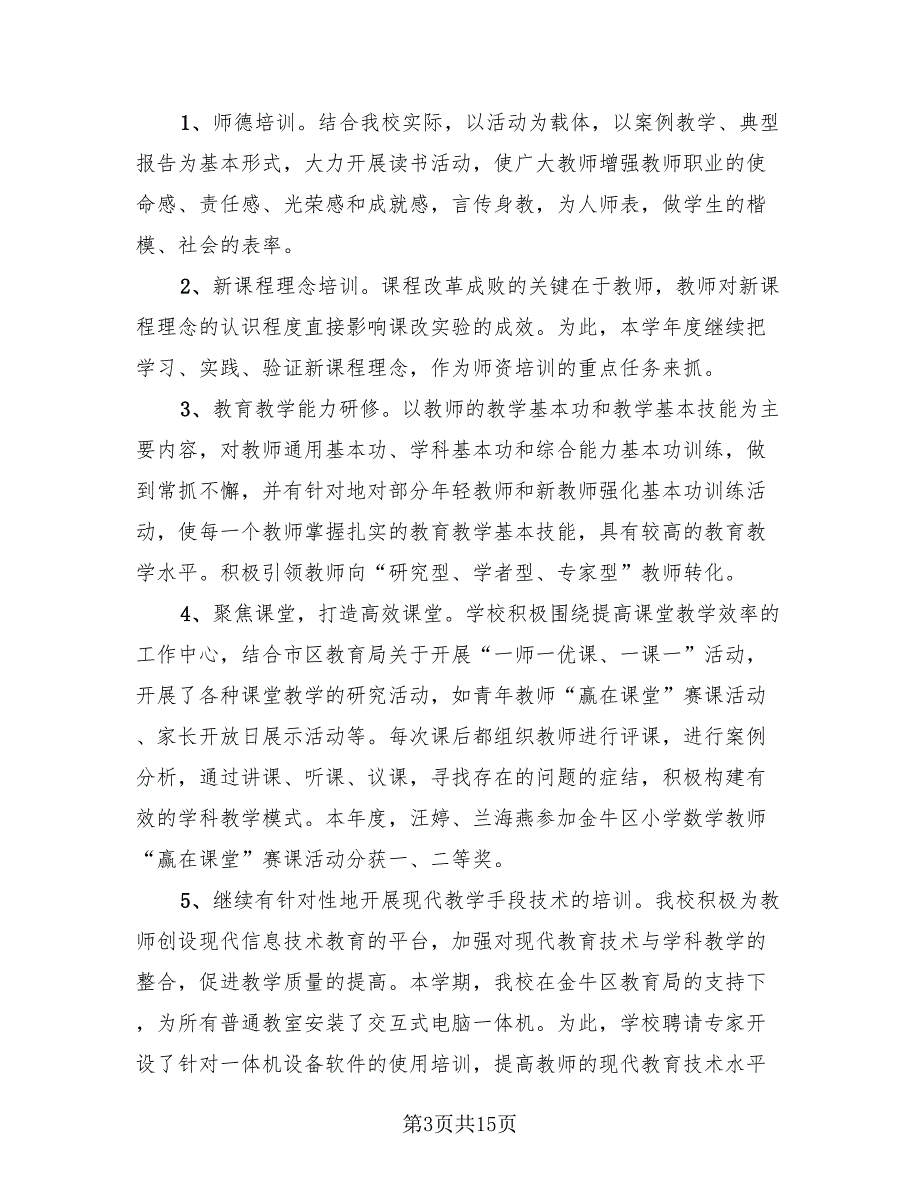 1、师德培训。结合我校实际，以活动为载体，以案例教学、典型
报告为基本形式，大力开展读书活动，使广大教师增强教师职业的使
命感、责任感、光荣感和成就感，言传身教，为人师表，做学生的楷
模、社会的表率。
2、新课程理念培训。课程改革成败的关键在于教师，教师对新课
程理念的认识程度直接影响课改实验的成效。为此，本学年度继续把
学习、实践、验证新课程理念，作为师资培训的重点任务来抓。
3、教育教学能力研修。以教师的教学基本功和教学基本技能为主
要内容，对教师通用基本功、学科基本功和综合能力基本功训练，做
到常抓不懈，并有针对地对部分年轻教师和新教师强化基本功训练活
动，使每一个教师掌握扎实的教育教学基本技能，具有较高的教育教
学水平。积极引领教师向“研究型、学者型、专家型”教师转化。
4、聚焦课堂，打造高效课堂。学校积极围绕提高课堂教学效率的
工作中心，结合市区教育局关于开展“一师一优课、一课一”活动，
开展了各种课堂教学的研究活动，如青年教师“赢在课堂”赛课活动
、家长开放日展示活动等。每次课后都组织教师进行评课，进行案例
分析，通过讲课、听课、议课，寻找存在的问题的症结，积极构建有
效的学科教学模式。本年度，汪婷、兰海燕参加金牛区小学数学教师
“赢在课堂”赛课活动分获一、二等奖。
5、继续有针对性地开展现代教学手段技术的培训。我校积极为教
师创设现代信息技术教育的平台，加强对现代教育技术与学科教学的
整合，促进教学质量的提高。本学期，我校在金牛区教育局的支持下
，为所有普通教室安装了交互式电脑一体机。为此，学校聘请专家开
设了针对一体机设备软件的使用培训，提高教师的现代教育技术水平
第3页共15页